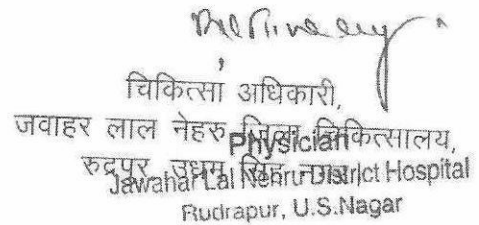 चिकित्सा अधिकारी,
जवाहर लाल नेहरु जिला चिकित्सालय,
Physician
रुद्रपुर उधम सिंह नगर
Jawahar Lal Nehru District Hospital
Rudrapur, U.S.Nagar